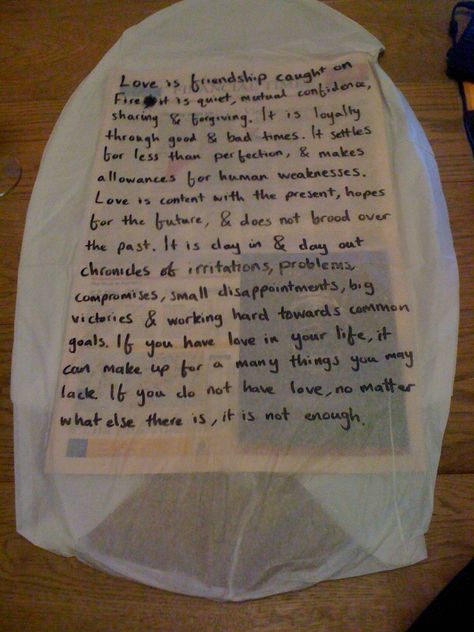 Love is friendship caught on
Fire it is quiet, mutual confidence,
sharing & forgiving. It is loyalty
through good & bad times. It settles
for less than perfection, & makes
allowances for human weaknesses.
Love is content with the present, hopes
for the future, & does not brood over
the past. It is day in & day out
chronicles of irritations, problems,
compromises, small disappointments, big
victories & working hard towards common
goals. If you have love in your life, it
can make up for a many things you may
lack. If you do not have love, no matter
what else there is, it is not enough.